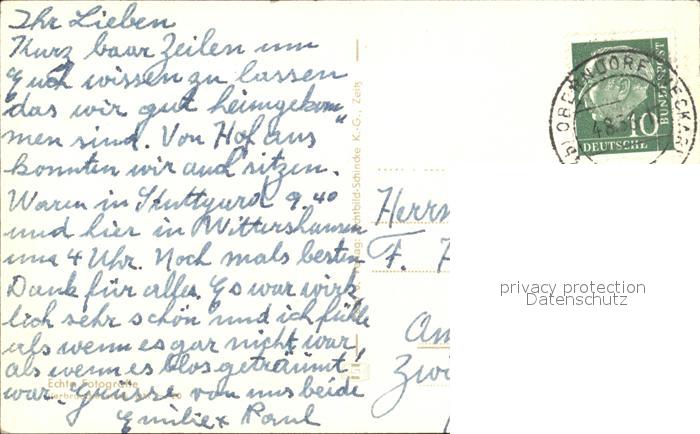 Ihr Lieben
Kurz baar Zeilen um
Euch wissen zu lassen
das wir gut heimgekom
men sind. Von Hof aus
konnten wir auch sitzen.
Waren in Stuttgard 9.40
und hier in Wittershausen
um 4 Uhr. Noch mals besten
Dank für alles. Es war wirk
lich sehr schön und ich fühle
als wenn es gar nicht war,
als wenn es blos geträumt!
war. Grüsse von uns beide
Emilie x Paul
Echte Fotografie
Lichtbild-Schincke K.-G., Zeitz
Herrn
F.
Am
OBERNDORF NECKAR
10
DEUTSCHE
BUNDESPOST
privacy protection
Datenschutz